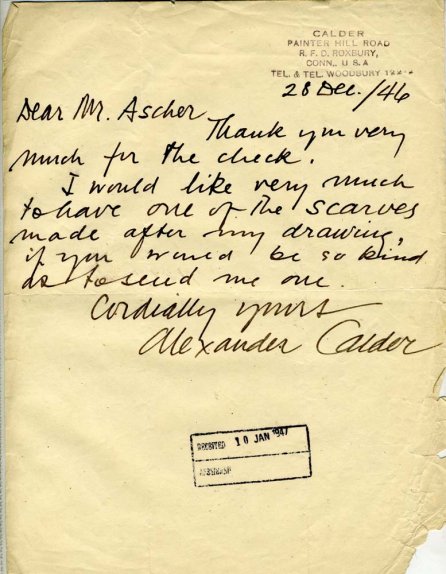 CALDER
PAINTER HILL ROAD
R. F. D. ROXBURY,
CONN., U S A
TEL. & TEL. WOODBURY
28 Dec./46
Dear Mr. Ascher
Thank you very
much for the check.
I would like very much
to have one of the scarves
made after my drawing,
if you would be so kind
as to send me one.
Cordially yours
Alexander Calder
RECEIVED 10 JAN 1947